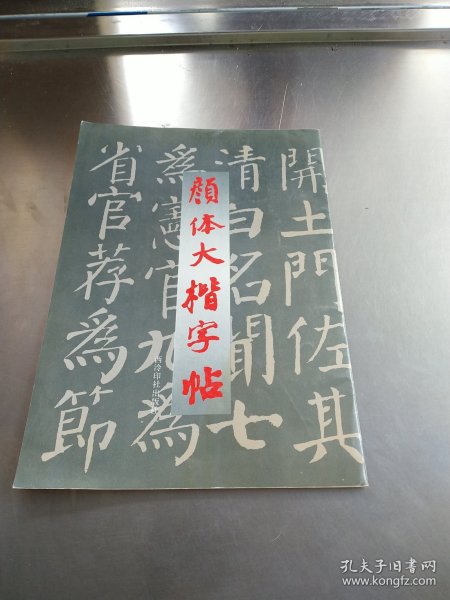 開土門佐其
清白名聞七
爲憲官九為
省官荐爲節
顔体大楷字帖
西泠印社出版
孔夫子旧书网
www.kongfz.com